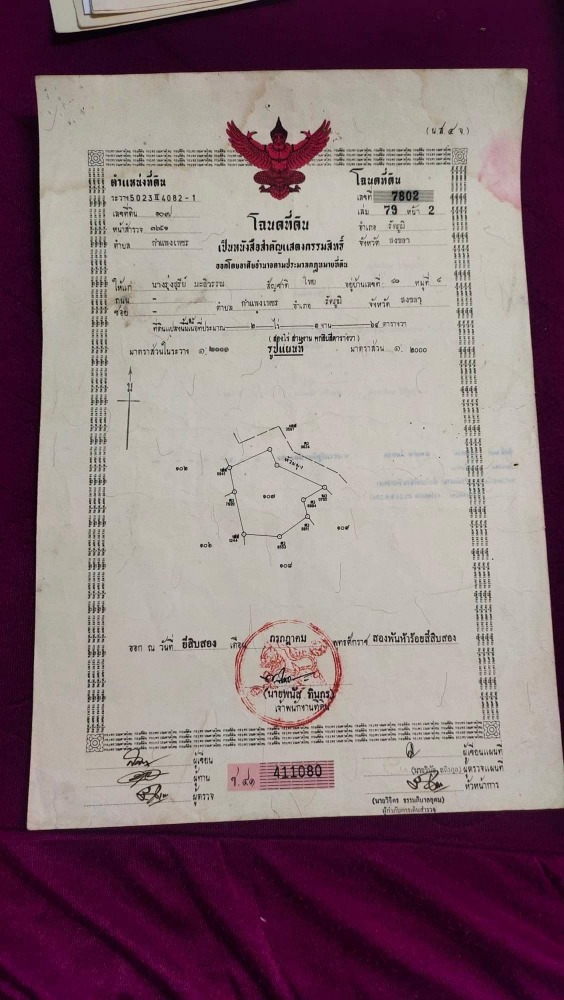 (น.ส.๔ จ)
ตำแหน่งที่ดิน
ระวาง 5023 II 4082-1
เลขที่ดิน ๑๐๗
หน้าสำรวจ ๓๖๕๑
ตำบล กำแพงเพชร
โฉนดที่ดิน
เลขที่ 7802
เล่ม 79 หน้า 2
อำเภอ รัตภูมิ
จังหวัด สงขลา
โฉนดที่ดิน
เป็นหนังสือสำคัญแสดงกรรมสิทธิ์
ออกโดยอาศัยอำนาจตามประมวลกฎหมายที่ดิน
ให้แก่ สัญชาติ ไทย อยู่บ้านเลขที่ หมู่ที่
ถนน –
ซอย – ตำบล กำแพงเพชร อำเภอ รัตภูมิ จังหวัด สงขลา
ที่ดินแปลงนี้มีเนื้อที่ประมาณ ๒ ไร่ ๓ งาน ๖๔ ตารางวา
(สองไร่ สามงาน หกสิบสี่ตารางวา)
มาตราส่วนในระวาง ๑:๒๐๐๐ รูปแผนที่ มาตราส่วน ๑:๒๐๐๐
น
๑๐๒
๑๐๗
๑๐๙
๑๐๖
๑๐๘
ออก ณ วันที่ ยี่สิบสอง เดือน กรกฎาคม พุทธศักราช สองพันห้าร้อยสี่สิบสอง
(นายพนัส ทินกร)
เจ้าพนักงานที่ดิน
ผู้เขียน
ผู้ทาน
ผู้ตรวจ
411080
ผู้เขียนแผนที่
ผู้ตรวจแผนที่
หัวหน้าการ
ผู้กำกับการเดินสำรวจ